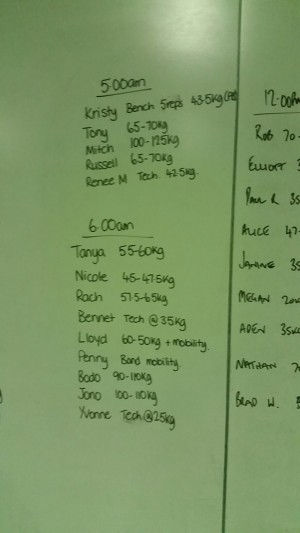 5:00am
Kristy Bench 5reps 43.5kg (PB)
Tony 65-70kg
Mitch 100-125kg
Russell 65-70kg
Renee M Tech. 42.5kg.
6:00am
Tanya 55-60kg
Nicole 45-47.5kg
Rach 57.5-65kg
Bennet Tech @ 35kg
Lloyd 60-50kg + mobility.
Penny Band mobility
Bodo 90-110kg
Jono 100-110kg
Yvonne Tech @ 25kg
12:00
ROB 70-
ELLIOTT 3
PAUL R 35
ALICE 47-
JANINE 35
MEGAN
ADEN 35kg
NATHAN 7
BRAD W.